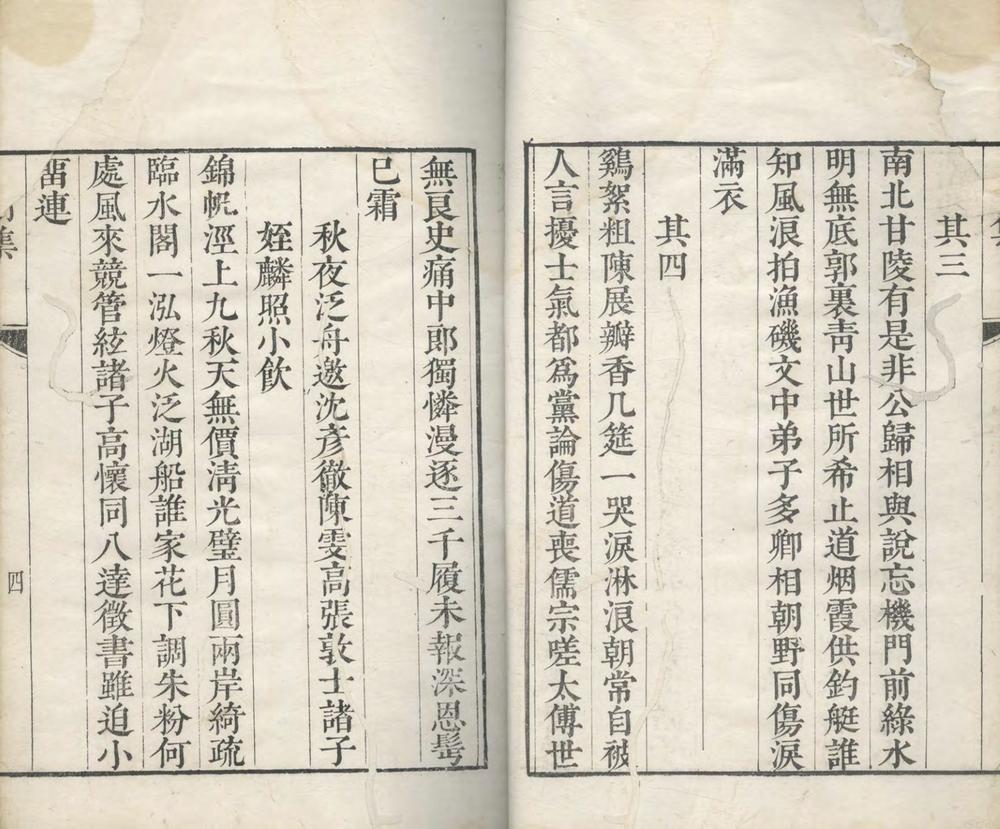 集
其三
南北甘陵有是非公歸相與說忘機門前綠水
明無底郭裏靑山世所希止道烟霞供釣艇誰
知風浪拍漁磯文中弟子多卿相朝野同傷淚
滿衣
其四
鷄絮粗陳展瓣香几筵一哭淚淋浪朝常自被
人言擾士氣都爲黨論傷道喪儒宗嗟太傅世
無良史痛中郎獨憐漫逐三千履未報深恩髩
已霜
秋夜泛舟邀沈彥徹陳雯高張敦士諸子
姪麟照小飮
錦帆涇上九秋天無價淸光璧月圓兩岸綺疏
臨水閣一泓燈火泛湖船誰家花下調朱粉何
處風來競管絃諸子高懷同八達徵書雖迫小
畱連
集
四